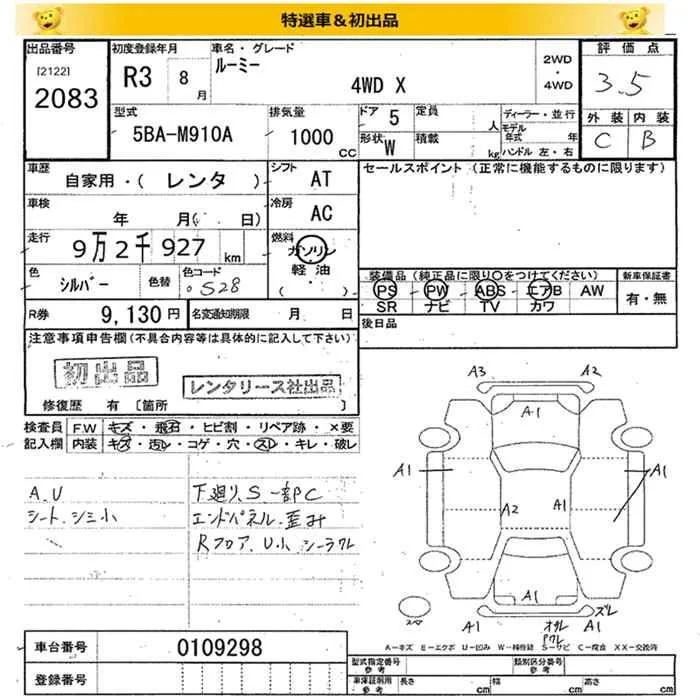 特選車＆初出品
出品番号
[2122]
2083
初度登録年月
R3 8 月
車名・グレード
ルーミー
4WD X
2WD
・
4WD
評価点
3.5
外装 内装
C B
型式
5BA-M910A
排気量
1000
CC
ドア 5
形状 W
定員
人
積載
kg
ディーラー・並行
モデル年式 年
ハンドル 左・右
車歴
自家用・( レンタ )
シフト
AT
車検
年 月( 日)
冷房
AC
走行
9万2千927 km
燃料
ガソリン
軽・油
( ・ )
色
シルバー
色替
色コード
S28
R券
9,130円
名変通知期限
月 日
セールスポイント (正常に機能するものに限ります)
装備品 (純正品に限り○をつけてください)
新車保証書
PS PW ABS エアB AW
SR ナビ TV カワ
有・無
後日品
注意事項申告欄(不具合内容等は具体的に記入して下さい)
初出品
レンタリース社出品
修復歴 有 [箇所 ]
検査員
記入欄
F.W キズ・飛石・ヒビ割・リペア跡・×要
内装 キズ・汚レ・コゲ・穴・スレ・キレ・破レ
A.U
シート.シミ小
下廻り.S一部C
エンドパネル.歪み
Rフロア.U小 シーラワレ
A3 A2
A1
A1 A1
A2 A1
A1
ズレ
スペア
オサレ A1
Pワレ
A-キズ E-エクボ U-凹み W-補修跡 S-サビ C-腐食 XX-交換済
車台番号
0109298
登録番号
型式指定番号
参考
類別区分番号
参考
車庫証明用
参考
長さ cm 幅 cm 高さ cm